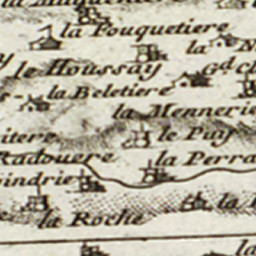 la Fouquetiere
la
le Houssay
la Beletiere
la Mennerie
le Puy
Radouere
la Perra
la
la Roche
la